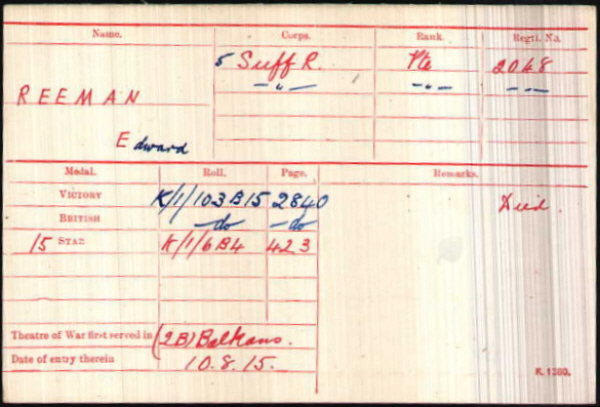 Name. Corps. Rank. Regtl. No.
5 Suff R. Pte 2048
REEMAN —"— —"— —"—
Edward
Medal. Roll. Page. Remarks.
VICTORY K/1/103B15 2840 Died.
BRITISH —do —do
15 STAR K/1/6B4 423
Theatre of War first served in (2B) Balkans.
Date of entry therein 10.8.15.
K. 1380.